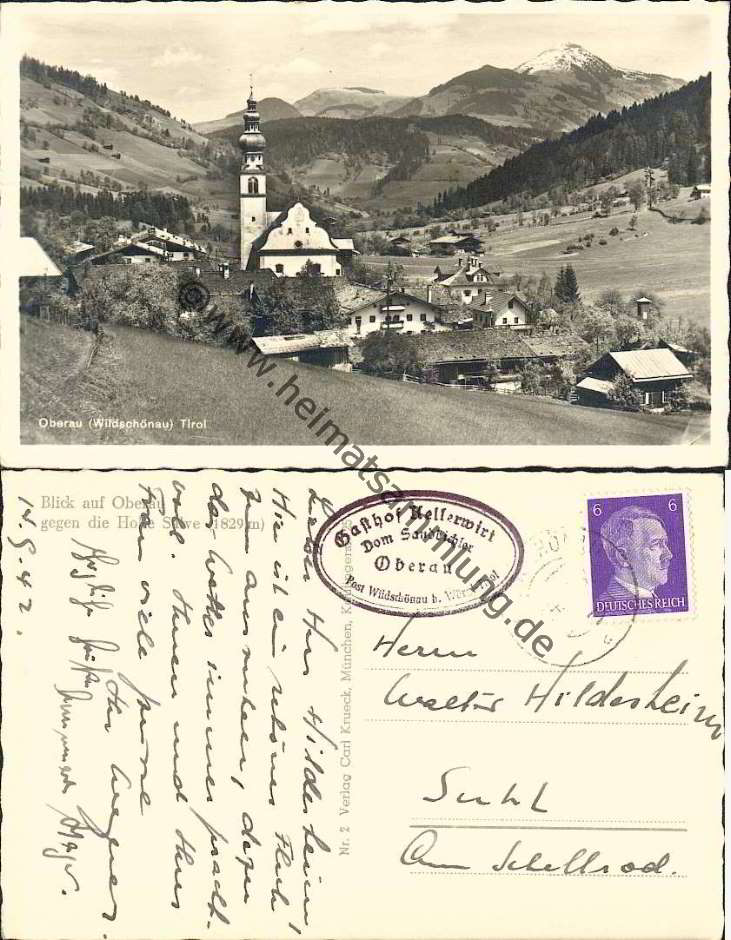 Oberau (Wildschönau) Tirol
© www.heimatsammlung.de
Blick auf Oberau
gegen die Hohe Salve (1829 m)
14. 9. 42.
Lieber Herr Hildesheim,
Hier ist ein schönes Fleck
zum ausruhen, dazu
das Wetter immer pracht-
voll. Ihnen und Ihrer
Frau viele
Ihr Wegner.
Herzliche Grüße
Nr. 2 Verlag Carl Krueck, München,
Gasthof Kellerwirt
Dom Sandbichler
Oberau
Post Wildschönau b. Wörgl Tirol
6 6
DEUTSCHES REICH
Herrn
Walter Hildesheim
Suhl
Am Schellrod.